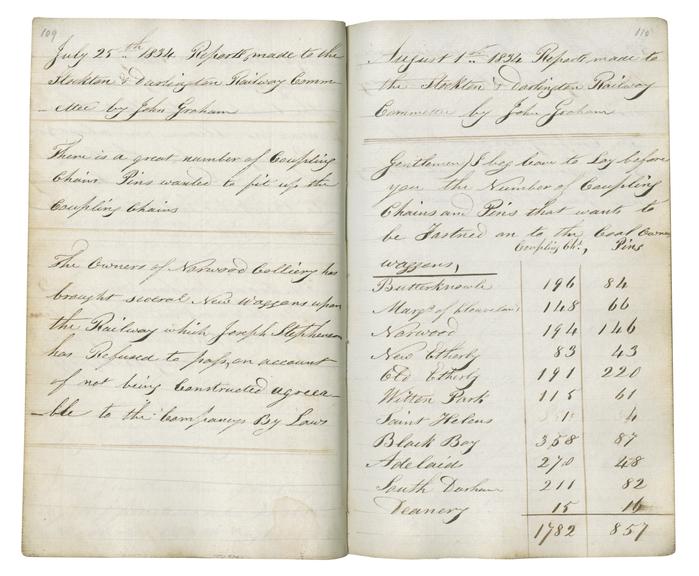 109
July 25th 1834 Reports made to the
Stockton & Darlington Railway Comm-
-ittee by John Graham
There is a great number of Coupling
Chain Pins wanted to fit up the
Coupling Chains
The Owners of Norwood Colliery has
brought several New Waggons upon
the Railway which Joseph Stephenson
has Refused to pass, on account
of not being Constructed agreea-
-ble to the Companys By Laws
110
August 1st 1834 Reports made to
the Stockton & Darlington Railway
Committee by John Graham
Gentlemen/ I beg leave to Lay before
you the Number of Coupling
Chains and Pins that wants to
be Fastned on to the Coal Owners
Coupling Chs, Pins
waggons,
Butterknowle 196 84
Marqs of 148 66
Norwood 194 146
New Etherly 83 43
Old Etherly 191 220
Witton Park 115 61
Saint Helens 4
Black Boy 358 87
Adelaid 270 48
South Durham 211 82
Deanery 15 16
1782 857